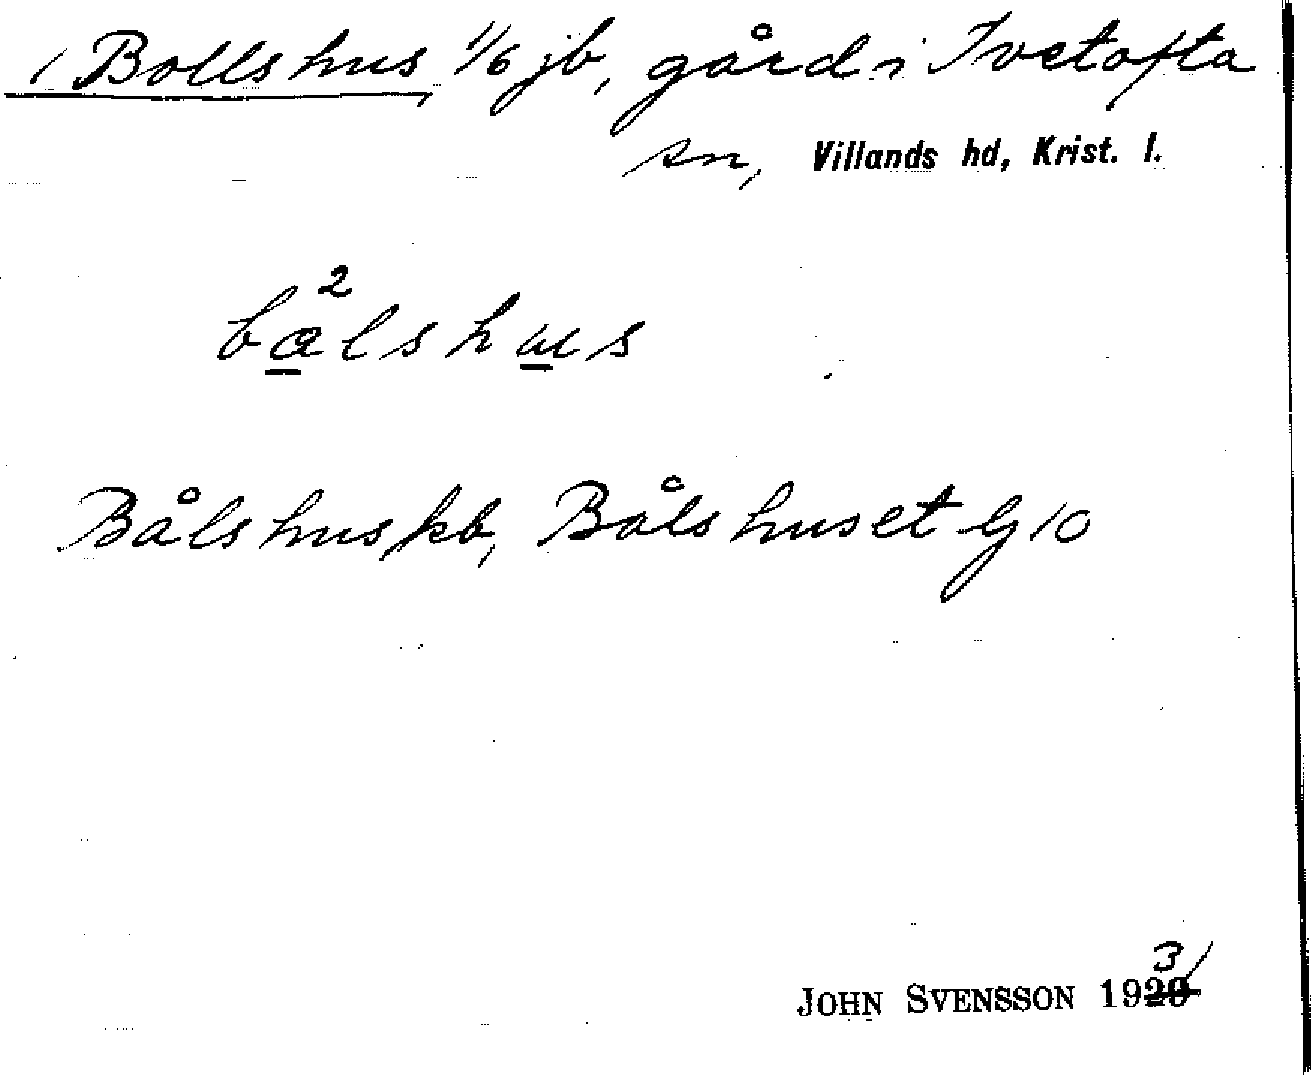 1 Bollshus 1/6 jb, gård i Ivetofta
sn, Villands hd, Krist. l.
2
bålshus
Bålshus kb, Bålshuset G 10
31
JOHN SVENSSON 1929